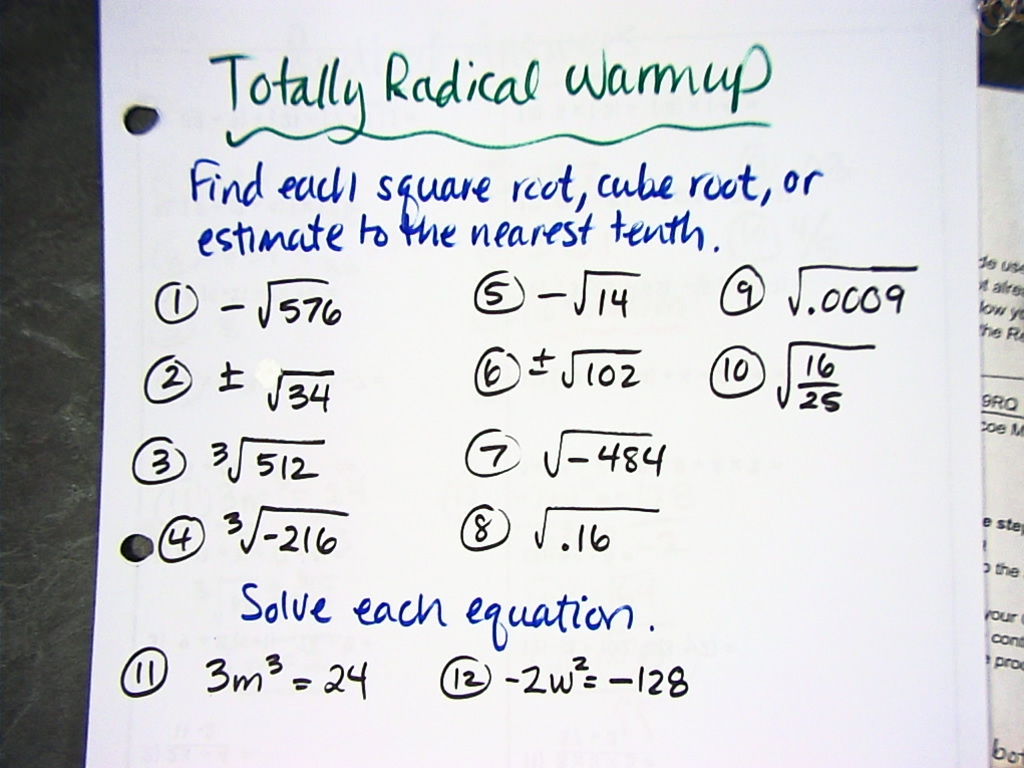 Totally Radical Warmup
Find each square root, cube root, or
estimate to the nearest tenth.
① -√576
② ± √34
③ ³√512
④ ³√-216
⑤ -√14
⑥ ±√102
⑦ √-484
⑧ √.16
⑨ √.0009
⑩ √16/25
Solve each equation.
⑪ 3m³ = 24
⑫ -2w² = -128
9RQ
e step
the
your